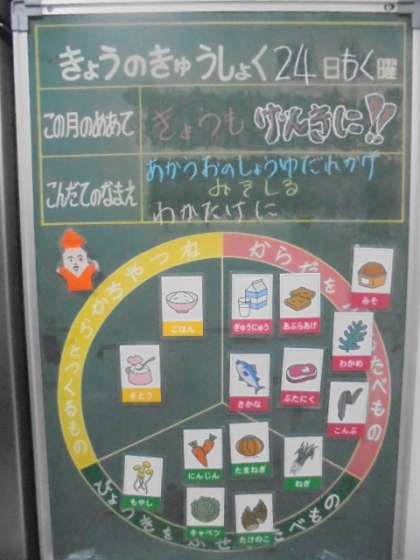 きょうのきゅうしょく 24日もく曜
この月のめあて
きょうも げんきに!!
こんだてのなまえ
あかうおのしょうゆだれかけ
みそしる
わかたけに
ねつやちからをつくるもの
からだを たべもの
みそ
ごはん
ぎゅうにゅう
あぶらあげ
わかめ
さとう
さかな
ぶたにく
こんぶ
にんじん
たまねぎ
ねぎ
もやし
キャベツ
たけのこ
びょうきをふせ たべもの